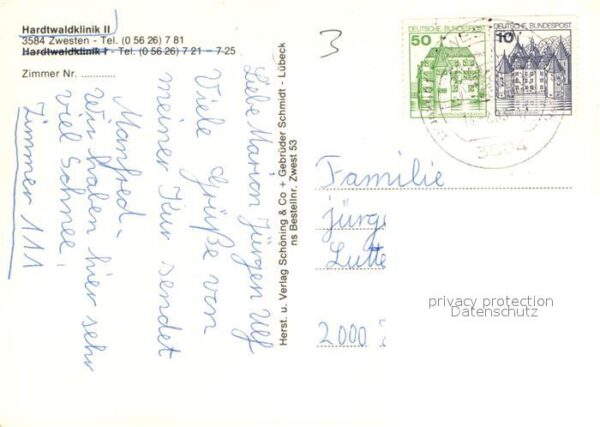 Hardtwaldklinik II
3584 Zwesten - Tel. (0 56 26) 7 81
Hardtwaldklinik I - Tel. (0 56 26) 7 21 - 7-25
Zimmer Nr. ............
Liebe Marion Jürgen Ulf
Viele Grüße von
meiner Kur sendet
Manfred -
wir haben hier sehr
viel Schnee!
Zimmer 111
Herst. u. Verlag Schöning & Co + Gebrüder Schmidt - Lübeck
ns Bestellnr. Zwest 53
3
DEUTSCHE BUNDESPOST
50
DEUTSCHE BUNDESPOST
10
3584
Familie
Jürge
Lutte
2000
privacy protection
Datenschutz